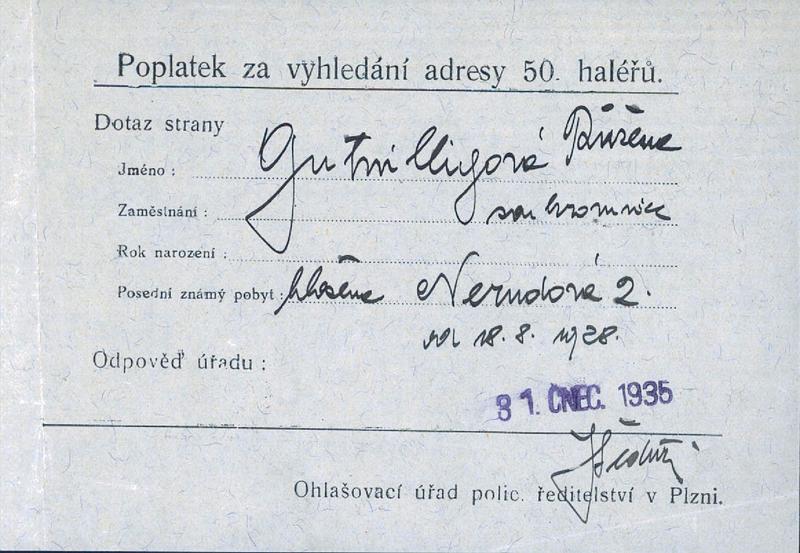 Poplatek za vyhledání adresy 50. haléřů.
Dotaz strany
Růžena
Jméno :
Zaměstnání : soukromnice
Rok narození :
Posední známý pobyt : hlášena Nerudová 2.
od 18. 8. 1928.
Odpověď úřadu :
31. ČNEC. 1935
Ohlašovací úřad polic. ředitelství v Plzni.